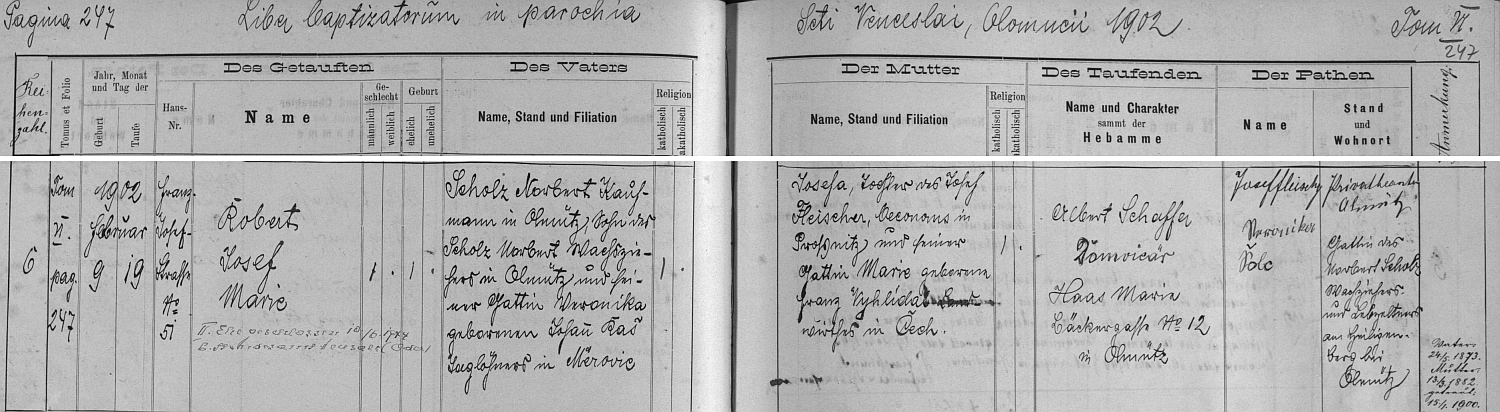 Pagina 247 Liber baptizatorum in parochia Scti Venceslai, Olomucii 1902. Tom VI.
247
Rei-
hen-
zahl.
Tomus et Folio
Jahr, Monat
und Tag der
Geburt
Taufe
Haus-
Nr.
Des Getauften
Name
Ge-
schlecht
männlich
weiblich
Geburt
ehelich
unehelich
Des Vaters
Name, Stand und Filiation
Religion
katholisch
akatholisch
Der Mutter
Name, Stand und Filiation
Religion
katholisch
akatholisch
Des Taufenden
Name und Charakter
sammt der
Hebamme
Der Pathen
Name
Stand
und
Wohnort
Anmerkung.
6
Tom
VI.
pag.
247
1902
Februar
9 19
Franz-
Josef-
Strasse
No
5
Robert
Josef
Marie
1 . 1 .
Scholz Norbert Kauf-
mann in Olmütz, Sohn des
Scholz Norbert Wachszie-
hers in Olmütz und sei-
ner Gattin Veronika
geborenen Johan Kaš
Taglöhners in Měrovic
1 .
Josefa, Tochter des Josef
Fleischer, Oeconoms in
Proßnitz und seiner
Gattin Marie geborene
Franz Vyhlídal
wirthes in Čech.
1 .
Albert Schaffer
Domvicär
Haas Marie
Bäckergasse No 12
in Olmütz
Veronika
Šolc
Olmütz
Gattin des
Norbert Scholz
Wachsziehers
und Lebzelters
am Heiligen-
berg bei
Olmütz
Vater:
24/5. 1873.
Mutter:
1882
getraut:
1900.